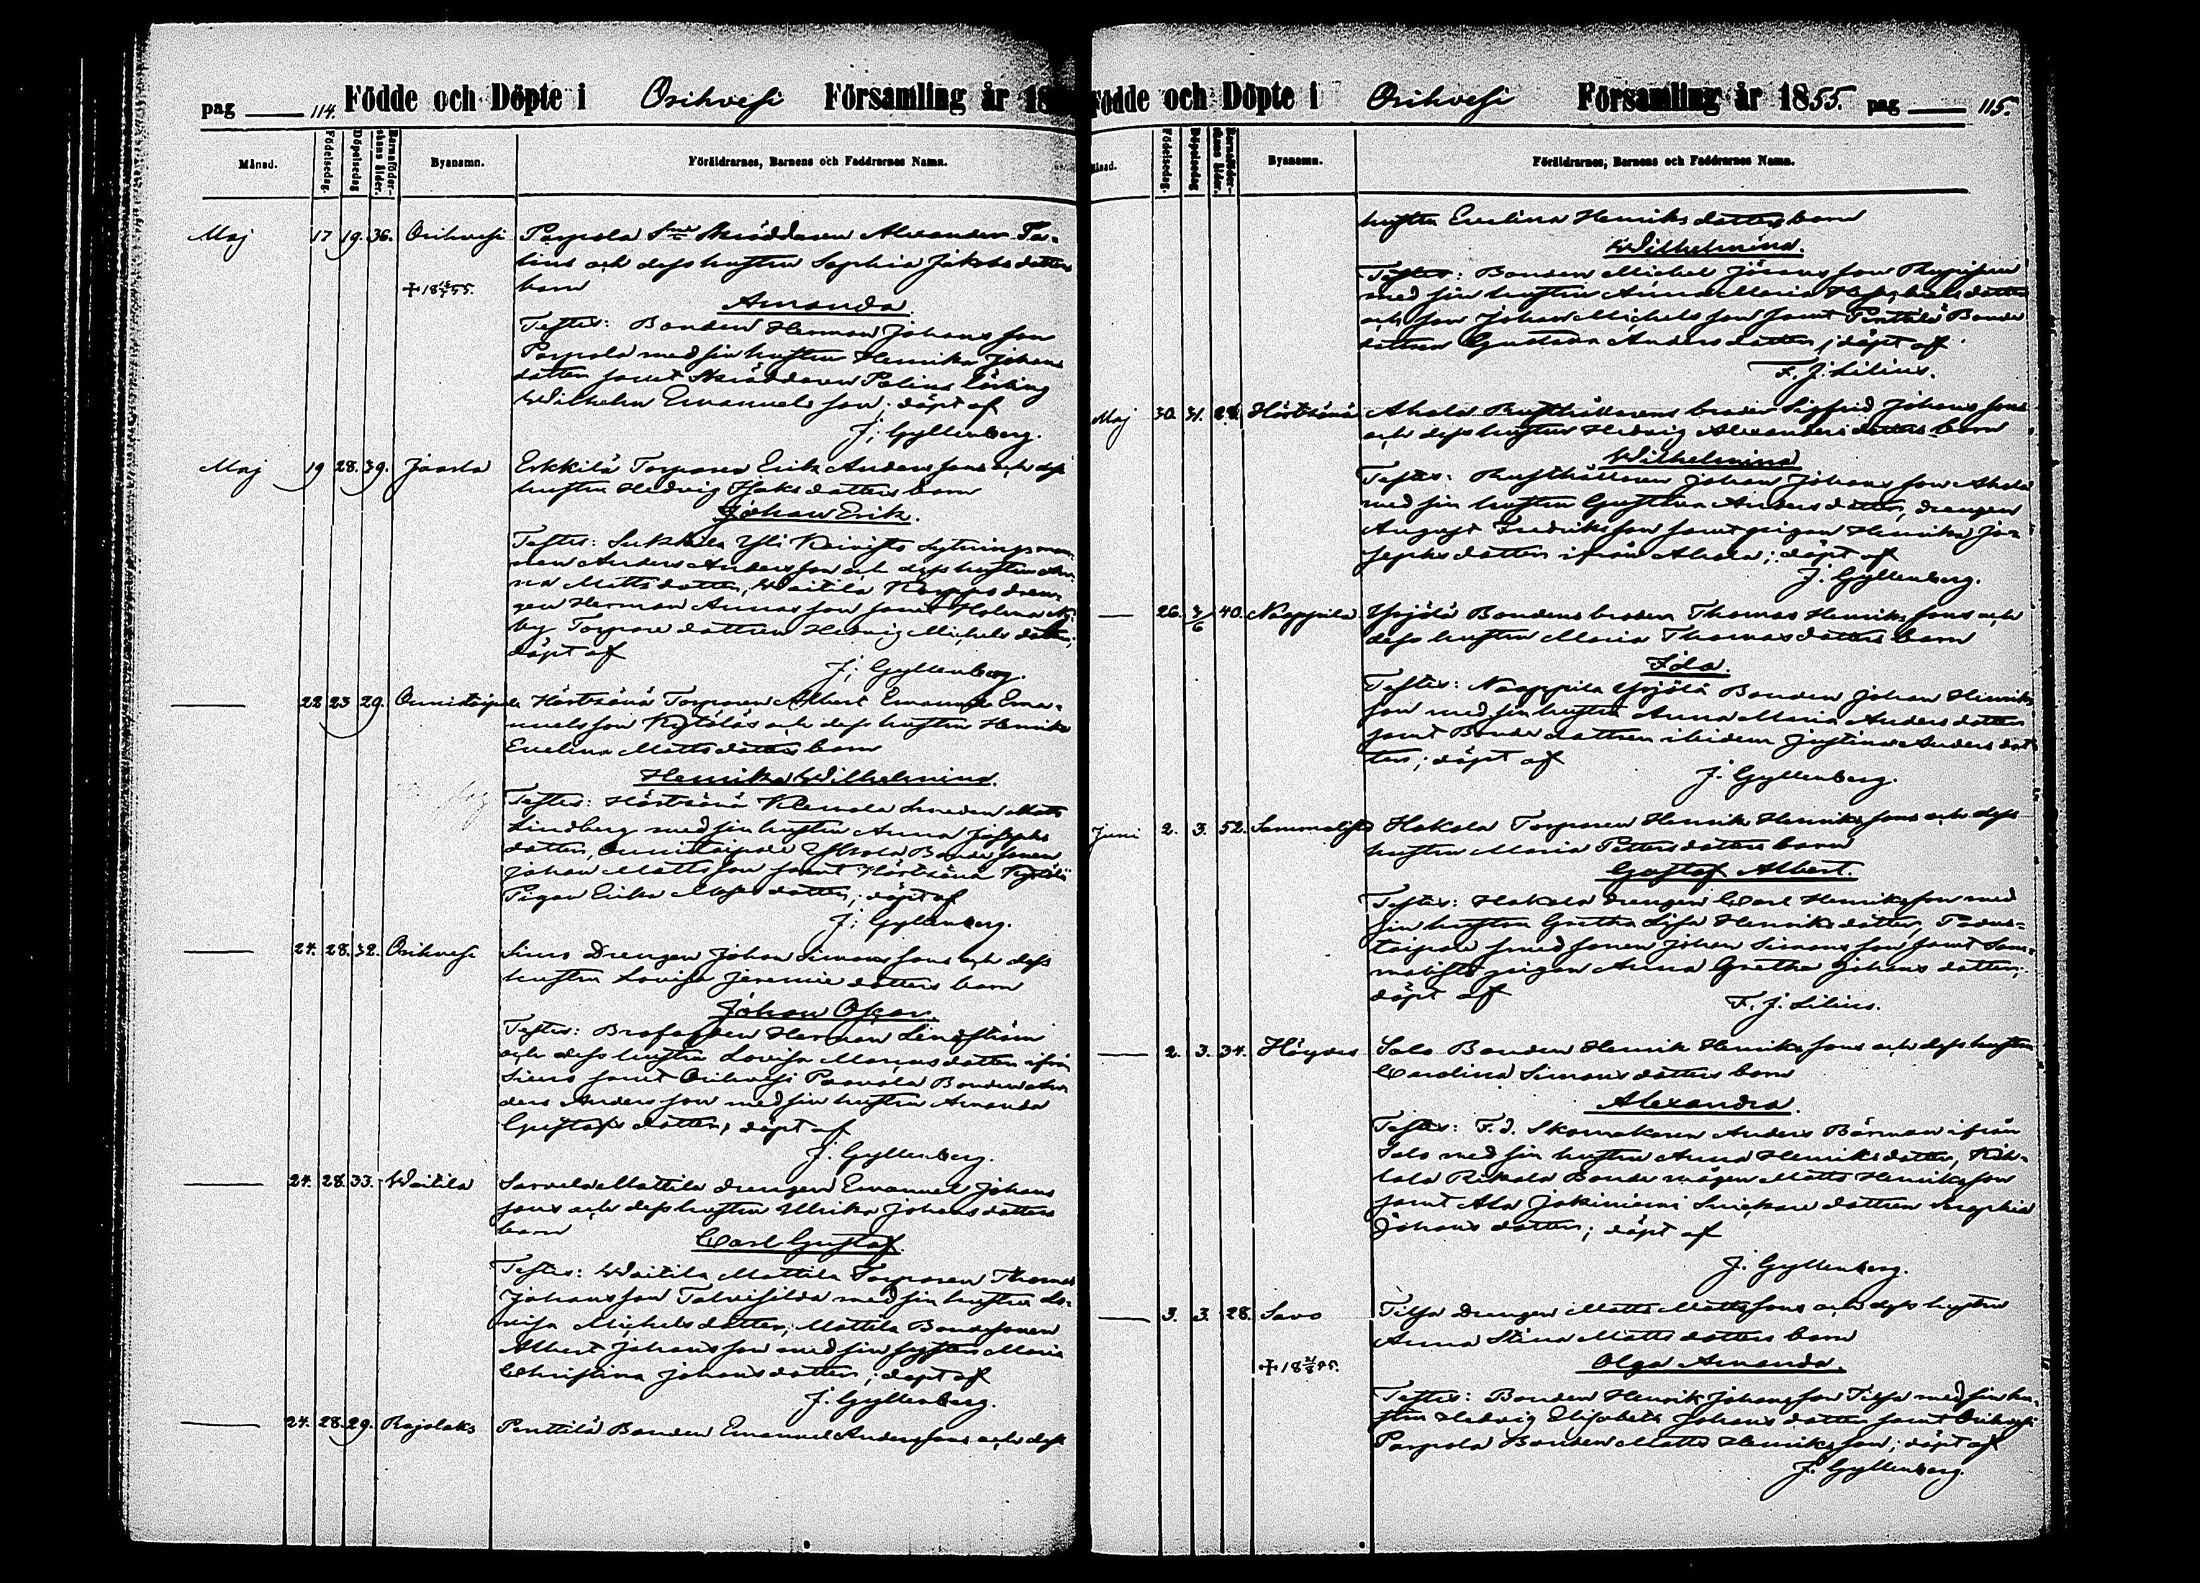 pag 114. Födde och Döpte i Orihvesi Församling år 18
Månad. Födelsedag. Döpelsedag Barnaföderskans ålder. Byanamn. Föräldrarnes, Barnens och Faddrarnes Namn.
Maj 17 19. 36. Orihvesi Parpola Skräddaren Alexander Pa-
lins och dess hustru Sophia Jakobsdotters
+ 18 55. barn
Amanda.
Testes: Bonden Herman Johansson
Parpola med sin hustru Henrika Johans
dotter samt Skräddaren Palins Lärling
Wilhelm Emanuelsson; döpt af
J. Gyllenberg.
Maj 19 28. 39. Jaarla Erkkilä Torparen Erik Anderssons och dess
hustru Hedvig Isaksdotters barn
Johan Erik.
Testes: Yli Sytningsman-
nen Anders Andersson och dess hustru An-
na Mattsdotter, Waitila drän-
gen Herman Annasson samt
by Torparedottren Hedvig Michelsdotter;
döpt af
J. Gyllenberg.
22 23 29. Onnistaipale Hörtsänä Torparen Albert Emanuel Ema-
nuelsson och dess hustru Henrika
Evelina Mattsdotters barn
Henrika Wilhelmina.
Testes: Hörtsänä Klemola Smeden Matts
Lindberg med sin hustru Anna Josephs
dotter, Onnistaipale Bondesonen
Johan Mattsson samt Hörtsänä
Pigan Erika dotter; döpt af
J. Gyllenberg.
24. 28. 32. Orihvesi Siuro Drengen Johan Simonssons och dess
hustru Lovisa Jeremiedotters barn
Johan Oscar.
Testes: Herman Lindström
och dess hustru Lovisa Magnusdotter ifrån
Siuro samt Orihvesi Paavola Bonden An-
ders Andersson med sin hustru Amanda
Gustafsdotter; döpt af
J. Gyllenberg.
24. 28. 33. Waitila Mattila drengen Emanuel Johans
sons och dess hustru Ulrika Johansdotters
barn
Carl Gustaf.
Testes: Waitila Mattila Torparen Thomas
Johansson med sin hustru Lo-
visa Michelsdotter, Mattila Bondesonen
Albert Johansson med sin syster Maria
Christina Johansdotter; döpt af
J. Gyllenberg.
24. 28. 29. Rajalaks Penttilä Bonden Emanuel Anderssons och dess
Födde och Döpte i Orihvesi Församling år 1855. pag 115.
Månad. Födelsedag. Döpelsedag Barnaföderskans ålder. Byanamn. Föräldrarnes, Barnens och Faddrarnes Namn.
hustru Evelina Henriksdotters barn
Wilhelmina.
Testes: Bonden Michel Jöransson
med sin hustru Anna Maria dotter
och son Johan Michelsson samt Penttilä Bonde
dottren Gustava Andersdotter; döpt af
F. J. Lilius.
Maj 30. 31. 28. Hörtsänä Ahola Rusthållarens broder Sigfrid Johanssons
och dess hustru Hedvig Alexandersdotters barn
Wilhelmina
Testes: Rusthållaren Johan Johansson Ahola
med sin hustru Gustava Andersdotter, drengen
August Fredriksson samt pigan Henrika Jo-
sephsdotter ifrån Ahola; döpt af
J. Gyllenberg.
26. 3/6 40. Naappila Yrjölä Bondens broder Thomas Henrikssons och
dess hustru Maria Thomasdotters barn
Ida.
Testes: Naappila Yrjölä Bonden Johan Henriks
son med sin hustru Anna Maria Andersdotter
samt Bondedottren ibidem Justina Andersdot
ter; döpt af
J. Gyllenberg.
Juni 2. 3. 52. Sammalisto Hakala Torparen Henrik Henrikssons och dess
hustru Maria Pettersdotters barn
Gustaf Albert.
Testes: Hakala drengen Carl Henriksson med
sin hustru Gretha Lisa Henriksdotter,
taipale smedsonen Johan Simonsson samt Sam-
malisto pigan Anna Gretha Johansdotter;
döpt af F. J. Lilius.
2. 3. 34. Salo Bonden Henrik Henrikssons och dess hustru
Carolina Simonsdotters barn
Alexandra.
Testes: F. d. Skomakaren Anders Bärman ifrån
Salo med sin hustru Anna Henriksdotter,
Bondemågen Matts Henriksson
samt Ala Snickaredottren Sophia
Johansdotter; döpt af
J. Gyllenberg.
3. 3. 28. Savo Tilsa drengen Matts Mattssons och dess hustru
Anna Stina Mattsdotters barn
+ 18 55. Olga Amanda.
Testes: Bonden Henrik Johansson Tilsa med sin hu-
stru Hedvig Elisabeth Johansdotter samt Orihvesi
Parpola Bonden Matts Henriksson; döpt af
J. Gyllenberg.